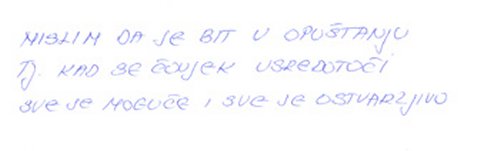 MISLIM DA JE BIT U OPUŠTANJU
TJ. KAD SE ČOVJEK USREDOTOČI
SVE JE MOGUČE I SVE JE OSTVARZIVO